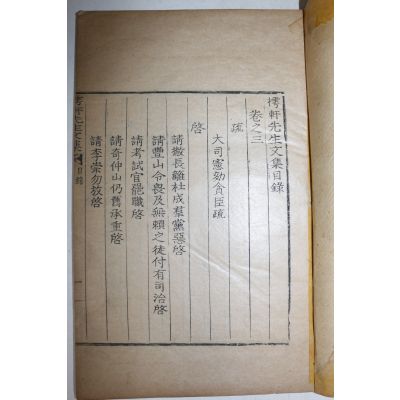 樗軒先生文集目錄
卷之三
疏
大司憲劾貪臣疏
啓
請散長離杜成羣黨惡啓
請豐山令畏及無賴之徒付有司治啓
請考試官罷職啓
請奇仲山仍舊承重啓
請李崇勿敍啓
樗軒先生文集 目錄